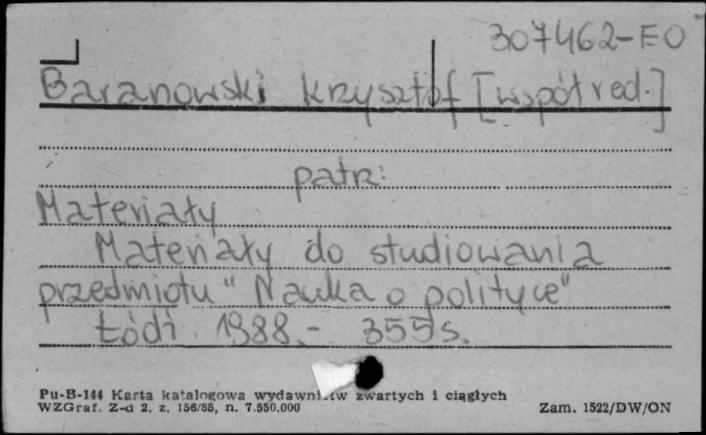 307462-EO
Baranowski Krzysztof [współred.]
patrz:
Materiały
Materiały do studiowania
przedmiotu "Nauka o polityce"
Łódź 1988.- 355 s.
Pu-B-144 Karta katalogowa wydawnictw zwartych i ciągłych
WZGraf. Z-d 2, z. 156/85, n. 7.550.000
Zam. 1522/DW/ON